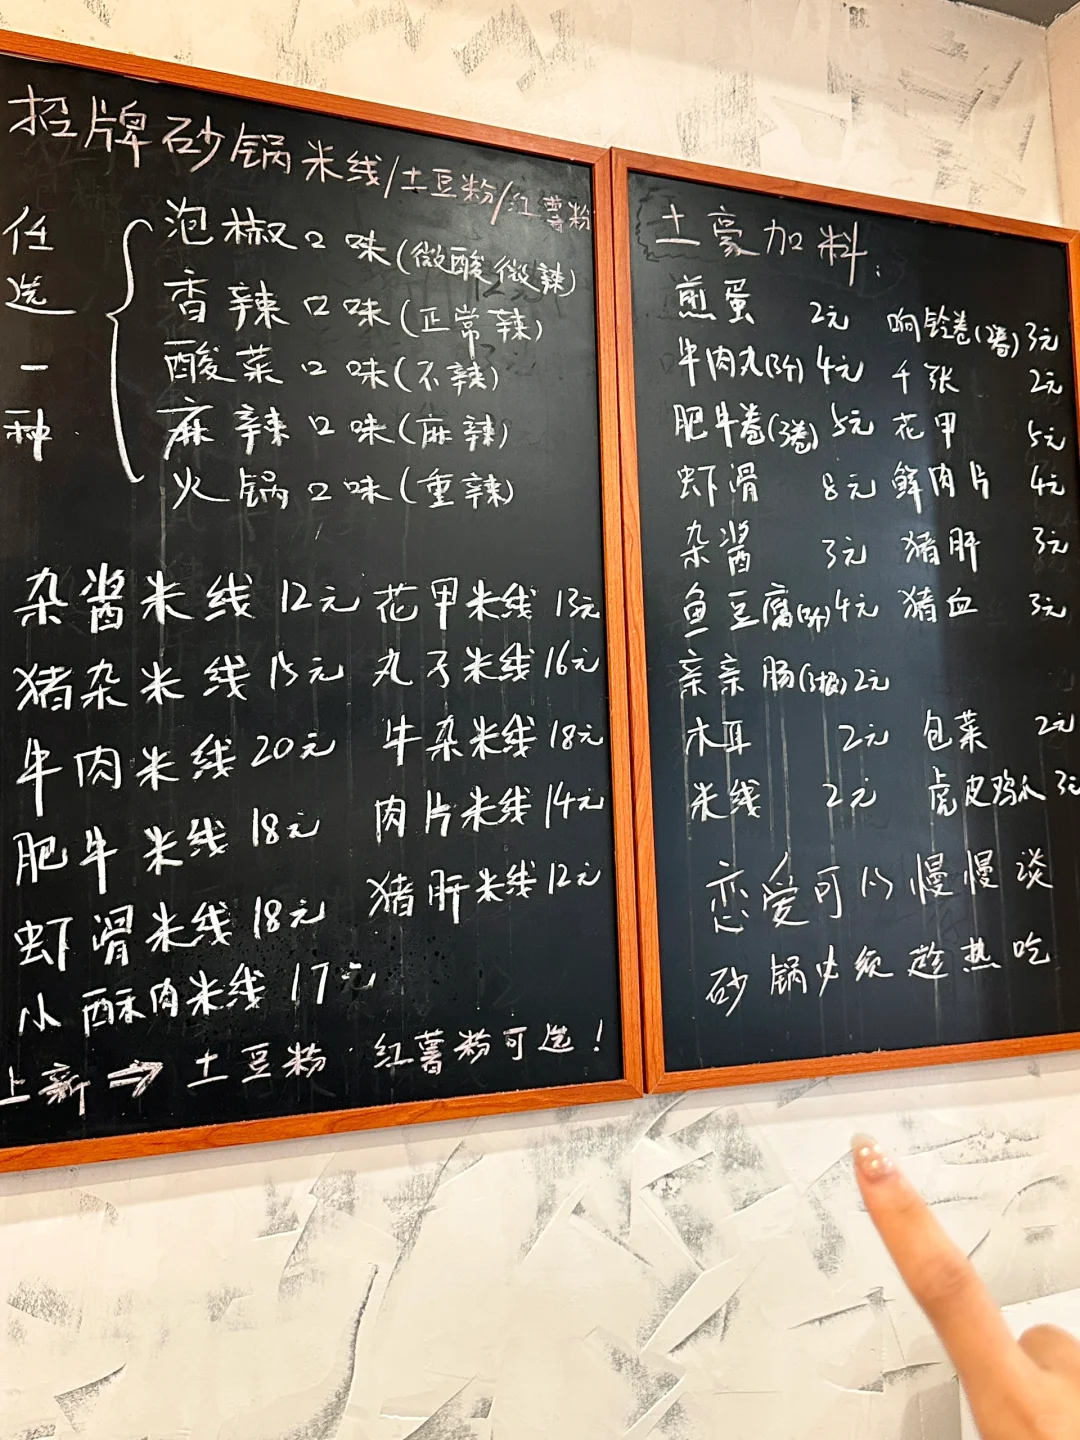 招牌砂锅米线/土豆粉/红薯粉
任选一种
泡椒口味(微酸微辣)
香辣口味(正常辣)
酸菜口味(不辣)
麻辣口味(麻辣)
火锅口味(重辣)
杂酱米线 12元 花甲米线 13元
猪杂米线 15元 丸子米线 16元
牛肉米线 20元 牛杂米线 18元
肥牛米线 18元 肉片米线 14元
虾滑米线 18元 猪肝米线 12元
小酥肉米线 17元
上新→土豆粉 红薯粉可选!
土豪加料:
煎蛋 2元 响铃卷(2卷) 3元
牛肉丸(3个) 4元 千张 2元
肥牛卷(3卷) 5元 花甲 5元
虾滑 8元 鲜肉片 4元
杂酱 3元 猪肝 3元
鱼豆腐 4元 猪血 3元
亲亲肠 2元
木耳 2元 包菜 2元
米线 2元 虎皮鸡爪 3元
恋爱可以慢慢谈
砂锅必须趁热吃